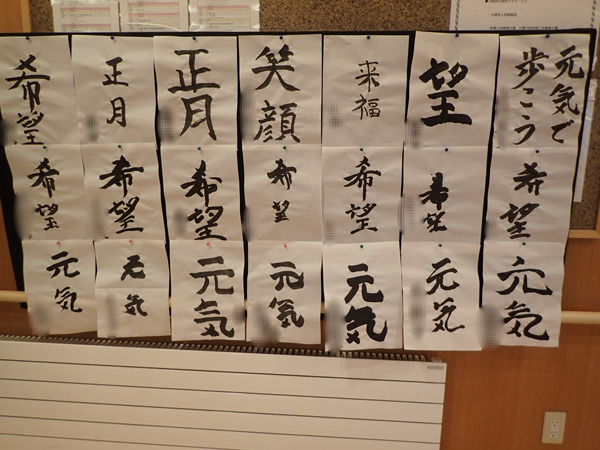 元気で
歩こう
望
来福
笑顔
正月
正月
希望
希望
希望
希望
希望
希望
希望
希望
元気
元気
元気
元気
元気
元気
元気